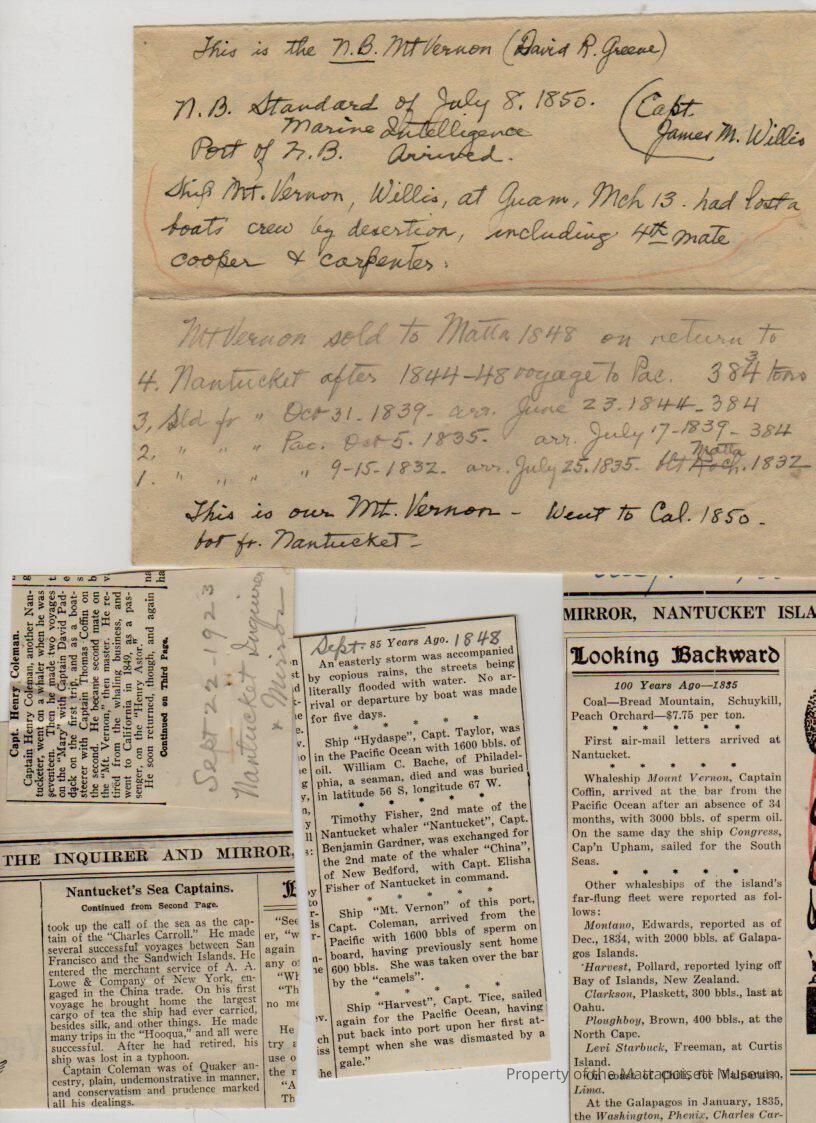 This is the N.B. Mt Vernon (David R. Greene)
N.B. Standard of July 8. 1850.
Marine Intelligence
Port of N.B. Arrived.
(Capt.
James M. Willis
Ship Mt. Vernon, Willis, at Guam, Mch 13. had lost a
boats crew by desertion, including 4th mate
cooper & carpenter.
Mt Vernon sold to Matta 1848 on return to
4. Nantucket after 1844-48 voyage to Pac. 384 3 tons
3, Sld fr " Oct 31-1839- arr. June 23.1844-384
2. " " " Pac. Oct 5. 1835. arr. July 17-1839-384
1. " " " " 9-15-1832. arr. July 25.1835- blt Matta 1832
This is our Mt. Vernon - Went to Cal. 1850-
bot fr. Nantucket-
Capt. Henry Coleman.
Captain Henry Coleman, another Nan-
tucketer, went on a whaler when he was
seventeen. Then he made two voyages
on the "Mary" with Captain David Pad-
dack on the first trip, and as a boat-
steerer with Captain Thomas Coffin on
the second. He became second mate on
the "Mt. Vernon," then master. He re-
tired from the whaling business, and
went to California in 1849, as a pas-
senger on the "Henry Astor."
He soon returned, though, and again
Continued on Third Page.
Sept 22-1923
Nantucket Inquirer
& Mirror
THE INQUIRER AND MIRROR,
Nantucket's Sea Captains.
Continued from Second Page.
took up the call of the sea as the cap-
tain of the "Charles Carroll." He made
several successful voyages between San
Francisco and the Sandwich Islands. He
entered the merchant service of A. A.
Lowe & Company of New York, en-
gaged in the China trade. On his first
voyage he brought home the largest
cargo of tea the ship had ever carried,
besides silk, and other things. He made
many trips in the "Hooqua," and all were
successful. After he had retired, his
ship was lost in a typhoon.
Captain Coleman was of Quaker an-
cestry, plain, undemonstrative in manner,
and conservatism and prudence marked
all his dealings.
"See
er, "w
again
any o
"Wh
"Th
no me
He
try a
use o
the r
"A
Th
Sept- 85 Years Ago. 1848
An easterly storm was accompanied
by copious rains, the streets being
literally flooded with water. No ar-
rival or departure by boat was made
for five days.
* * * * *
Ship "Hydaspe", Capt. Taylor, was
in the Pacific Ocean with 1600 bbls. of
oil. William C. Bache, of Philadel-
phia, a seaman, died and was buried
in latitude 56 S, longitude 67 W.
* * * * *
Timothy Fisher, 2nd mate of the
Nantucket whaler "Nantucket", Capt.
Benjamin Gardner, was exchanged for
the 2nd mate of the whaler "China",
of New Bedford, with Capt. Elisha
Fisher of Nantucket in command.
* * * * *
Ship "Mt. Vernon" of this port,
Capt. Coleman, arrived from the
Pacific with 1600 bbls of sperm on
board, having previously sent home
600 bbls. She was taken over the bar
by the "camels".
* * * * *
Ship "Harvest", Capt. Tice, sailed
again for the Pacific Ocean, having
put back into port upon her first at-
tempt when she was dismasted by a
gale."
MIRROR, NANTUCKET ISLA
Looking Backward
100 Years Ago—1835
Coal—Bread Mountain, Schuykill,
Peach Orchard—$7.75 per ton.
* * * * *
First air-mail letters arrived at
Nantucket.
* * * * *
Whaleship Mount Vernon, Captain
Coffin, arrived at the bar from the
Pacific Ocean after an absence of 34
months, with 3000 bbls. of sperm oil.
On the same day the ship Congress,
Cap'n Upham, sailed for the South
Seas.
* * * * *
Other whaleships of the island's
far-flung fleet were reported as fol-
lows:
Montano, Edwards, reported as of
Dec., 1834, with 2000 bbls. at Galapa-
gos Islands.
Harvest, Pollard, reported lying off
Bay of Islands, New Zealand.
Clarkson, Plaskett, 300 bbls., last at
Oahu.
Ploughboy, Brown, 400 bbls., at the
North Cape.
Levi Starbuck, Freeman, at Curtis
Island.
On coast of Chili, for Valparaiso,
Lima.
At the Galapagos in January, 1835,
the Washington, Phenix, Charles Car-
Property of the Mattapoisett Museum